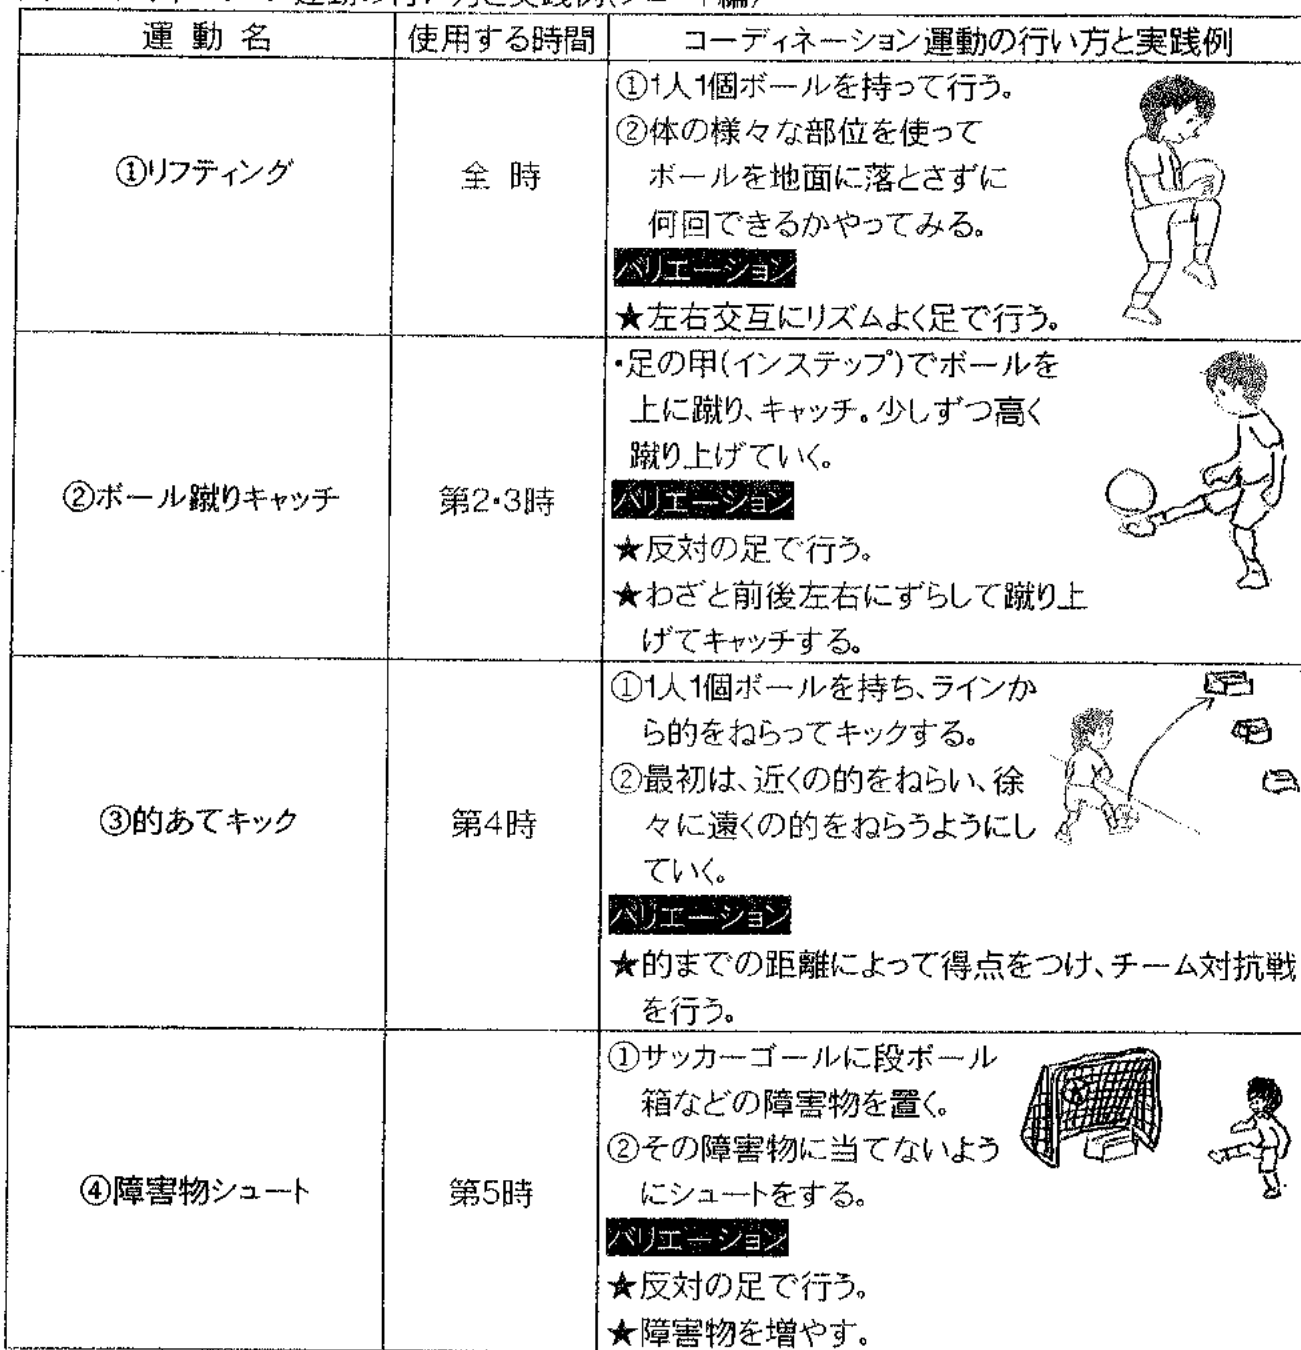 運動の行い方と実践例(シュート編)
運 動 名 使用する時間 コーディネーション運動の行い方と実践例
①リフティング 全 時
①1人1個ボールを持って行う。
②体の様々な部位を使って
ボールを地面に落とさずに
何回できるかやってみる。
バリエーション
★左右交互にリズムよく足で行う。
②ボール蹴りキャッチ 第2・3時
・足の甲(インステップ)でボールを
上に蹴り、キャッチ。少しずつ高く
蹴り上げていく。
バリエーション
★反対の足で行う。
★わざと前後左右にずらして蹴り上
げてキャッチする。
③的あてキック 第4時
①1人1個ボールを持ち、ラインか
ら的をねらってキックする。
②最初は、近くの的をねらい、徐
々に遠くの的をねらうようにし
ていく。
バリエーション
★的までの距離によって得点をつけ、チーム対抗戦
を行う。
④障害物シュート 第5時
①サッカーゴールに段ボール
箱などの障害物を置く。
②その障害物に当てないよう
にシュートをする。
バリエーション
★反対の足で行う。
★障害物を増やす。